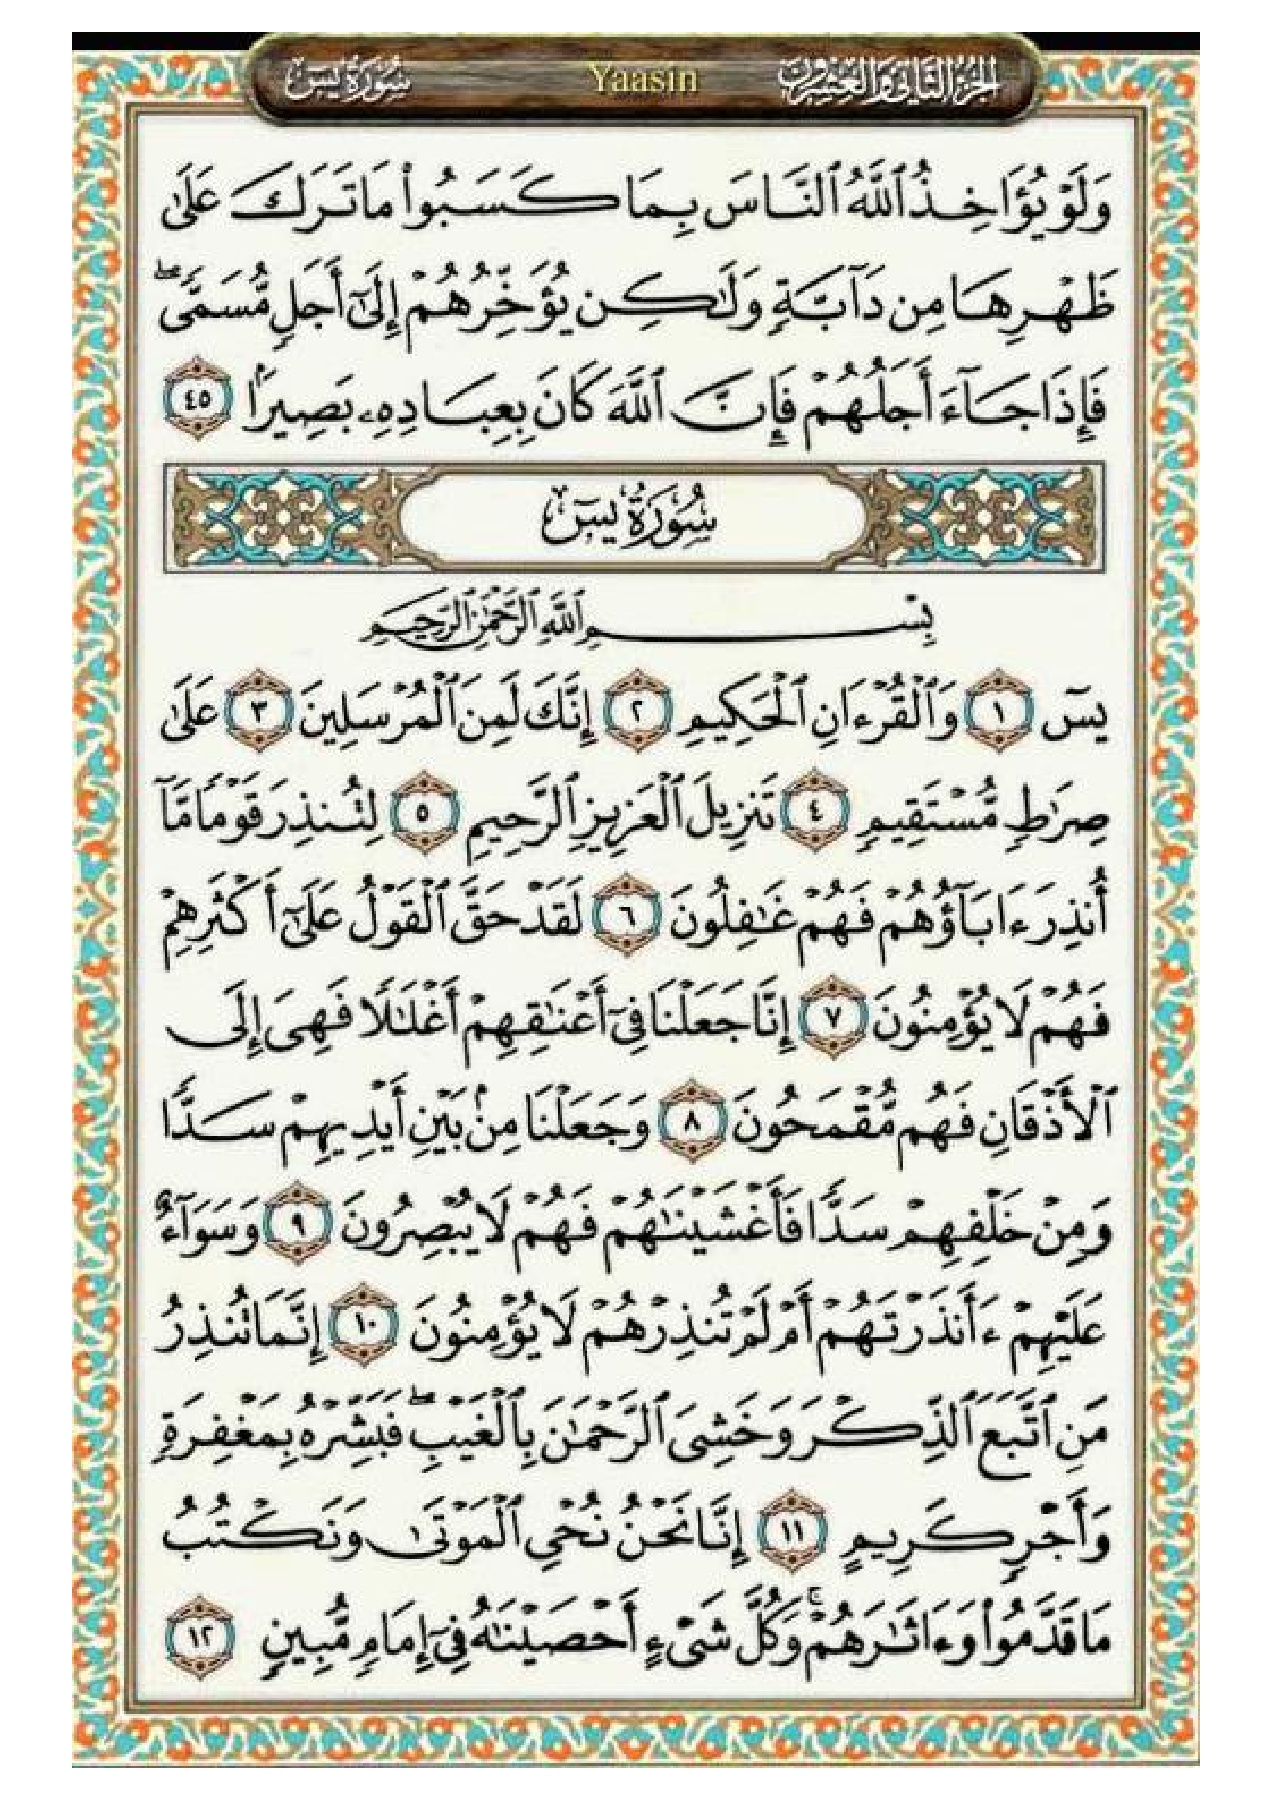 سُورَةُ يسٓ Yaasin الجزء الثاني والعشرون
وَلَوْ يُؤَاخِذُ ٱللَّهُ ٱلنَّاسَ بِمَا كَسَبُوا۟ مَا تَرَكَ عَلَىٰ
ظَهْرِهَا مِن دَآبَّةٍ وَلَـٰكِن يُؤَخِّرُهُمْ إِلَىٰٓ أَجَلٍ مُّسَمًّى ۖ
فَإِذَا جَآءَ أَجَلُهُمْ فَإِنَّ ٱللَّهَ كَانَ بِعِبَادِهِۦ بَصِيرًۢا ٤٥
سُورَةُ يسٓ
بِسْمِ ٱللَّهِ ٱلرَّحْمَـٰنِ ٱلرَّحِيمِ
يسٓ ١ وَٱلْقُرْءَانِ ٱلْحَكِيمِ ٢ إِنَّكَ لَمِنَ ٱلْمُرْسَلِينَ ٣ عَلَىٰ
صِرَٰطٍ مُّسْتَقِيمٍ ٤ تَنزِيلَ ٱلْعَزِيزِ ٱلرَّحِيمِ ٥ لِتُنذِرَ قَوْمًا مَّآ
أُنذِرَ ءَابَآؤُهُمْ فَهُمْ غَـٰفِلُونَ ٦ لَقَدْ حَقَّ ٱلْقَوْلُ عَلَىٰٓ أَكْثَرِهِمْ
فَهُمْ لَا يُؤْمِنُونَ ٧ إِنَّا جَعَلْنَا فِىٓ أَعْنَـٰقِهِمْ أَغْلَـٰلًا فَهِىَ إِلَى
ٱلْأَذْقَانِ فَهُم مُّقْمَحُونَ ٨ وَجَعَلْنَا مِنۢ بَيْنِ أَيْدِيهِمْ سَدًّا
وَمِنْ خَلْفِهِمْ سَدًّا فَأَغْشَيْنَـٰهُمْ فَهُمْ لَا يُبْصِرُونَ ٩ وَسَوَآءٌ
عَلَيْهِمْ ءَأَنذَرْتَهُمْ أَمْ لَمْ تُنذِرْهُمْ لَا يُؤْمِنُونَ ١٠ إِنَّمَا تُنذِرُ
مَنِ ٱتَّبَعَ ٱلذِّكْرَ وَخَشِىَ ٱلرَّحْمَـٰنَ بِٱلْغَيْبِ ۖ فَبَشِّرْهُ بِمَغْفِرَةٍ
وَأَجْرٍ كَرِيمٍ ١١ إِنَّا نَحْنُ نُحْىِ ٱلْمَوْتَىٰ وَنَكْتُبُ
مَا قَدَّمُوا۟ وَءَاثَـٰرَهُمْ ۚ وَكُلَّ شَىْءٍ أَحْصَيْنَـٰهُ فِىٓ إِمَامٍ مُّبِينٍ ١٢